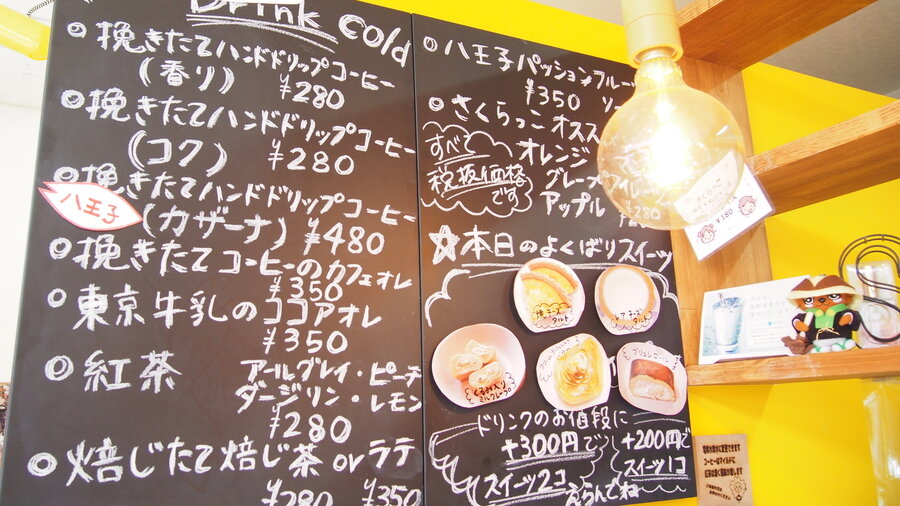 Drink Cold
挽きたてハンドドリップコーヒー
(香り) ¥280
挽きたてハンドドリップコーヒー
(コク) ¥280
挽きたてハンドドリップコーヒー
八王子
(カザーナ) ¥480
挽きたてコーヒーのカフェオレ
¥350
東京牛乳のココアオレ
¥350
紅茶 アールグレイ・ピーチ
ダージリン・レモン
¥280
焙じたて焙じ茶 or ラテ
¥280 ¥350
八王子パッションフルー
¥350 ソー
さくらっこオスス
すべて
税抜価格
です
オレンジ
グレープ
アップル
¥280
☆本日のよくばりスイーツ
くるみ入り
ミルクレープ
ドリンクのお値段に
+300円で
スイーツ2コ
+200円で
スイーツ1コ
えらんでね
¥180